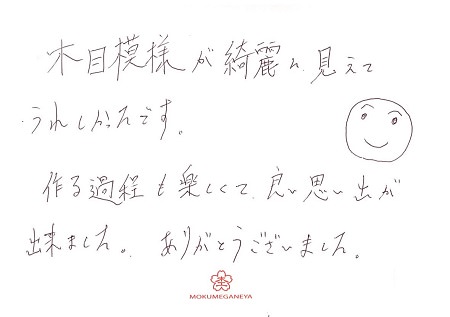 木目模様が綺麗に見えて
うれしかたです。
作る過程も楽しくて、良い思い出が
出来ました。ありがとうございました。
MOKUMEGANEYA